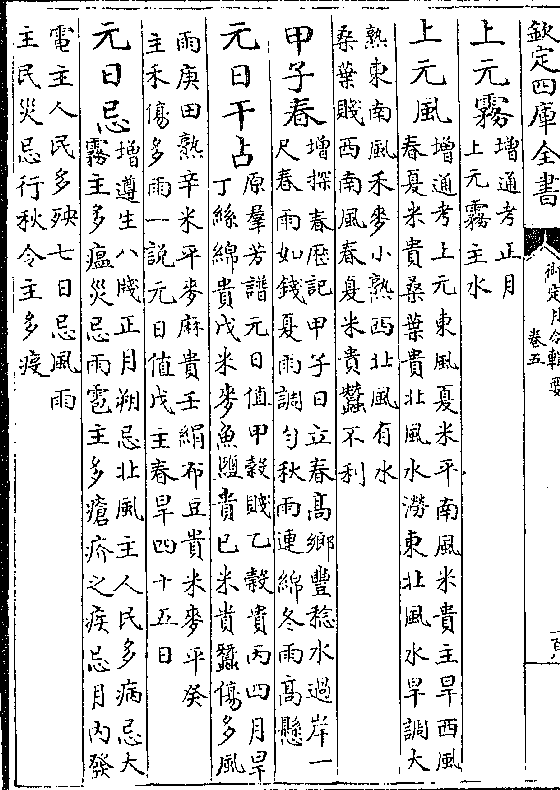 欽定四庫全書
御定月令輯要
卷五
上元霧增通考正月
上元霧主水
上元風增通考上元東風夏米平南風米貴主旱西風
春夏米貴桑葉貴北風水澇東北風水旱調大
熟東南風禾麥小熟西北風有水
桑葉賤西南風春夏米貴蠶不利
甲子春增探春歷記甲子日立春髙鄉豐稔水過岸一
尺春雨如錢夏雨調勻秋雨連綿冬雨髙懸
元日干占原羣芳譜元日值甲穀賤乙穀貴丙四月旱
丁絲綿貴戊米麥魚鹽貴已米貴蠶傷多風
雨庚田熟辛米平麥麻貴壬絹布豆貴米麥平癸
主禾傷多雨一說元日值戊主春旱四十五日
元日忌增遵生八牋正月朔忌北風主人民多病忌大
霧主多瘟災忌雨雹主多瘡疥之疾忌月內發
電主人民多殃七日忌風雨
主民災忌行秋令主多疫